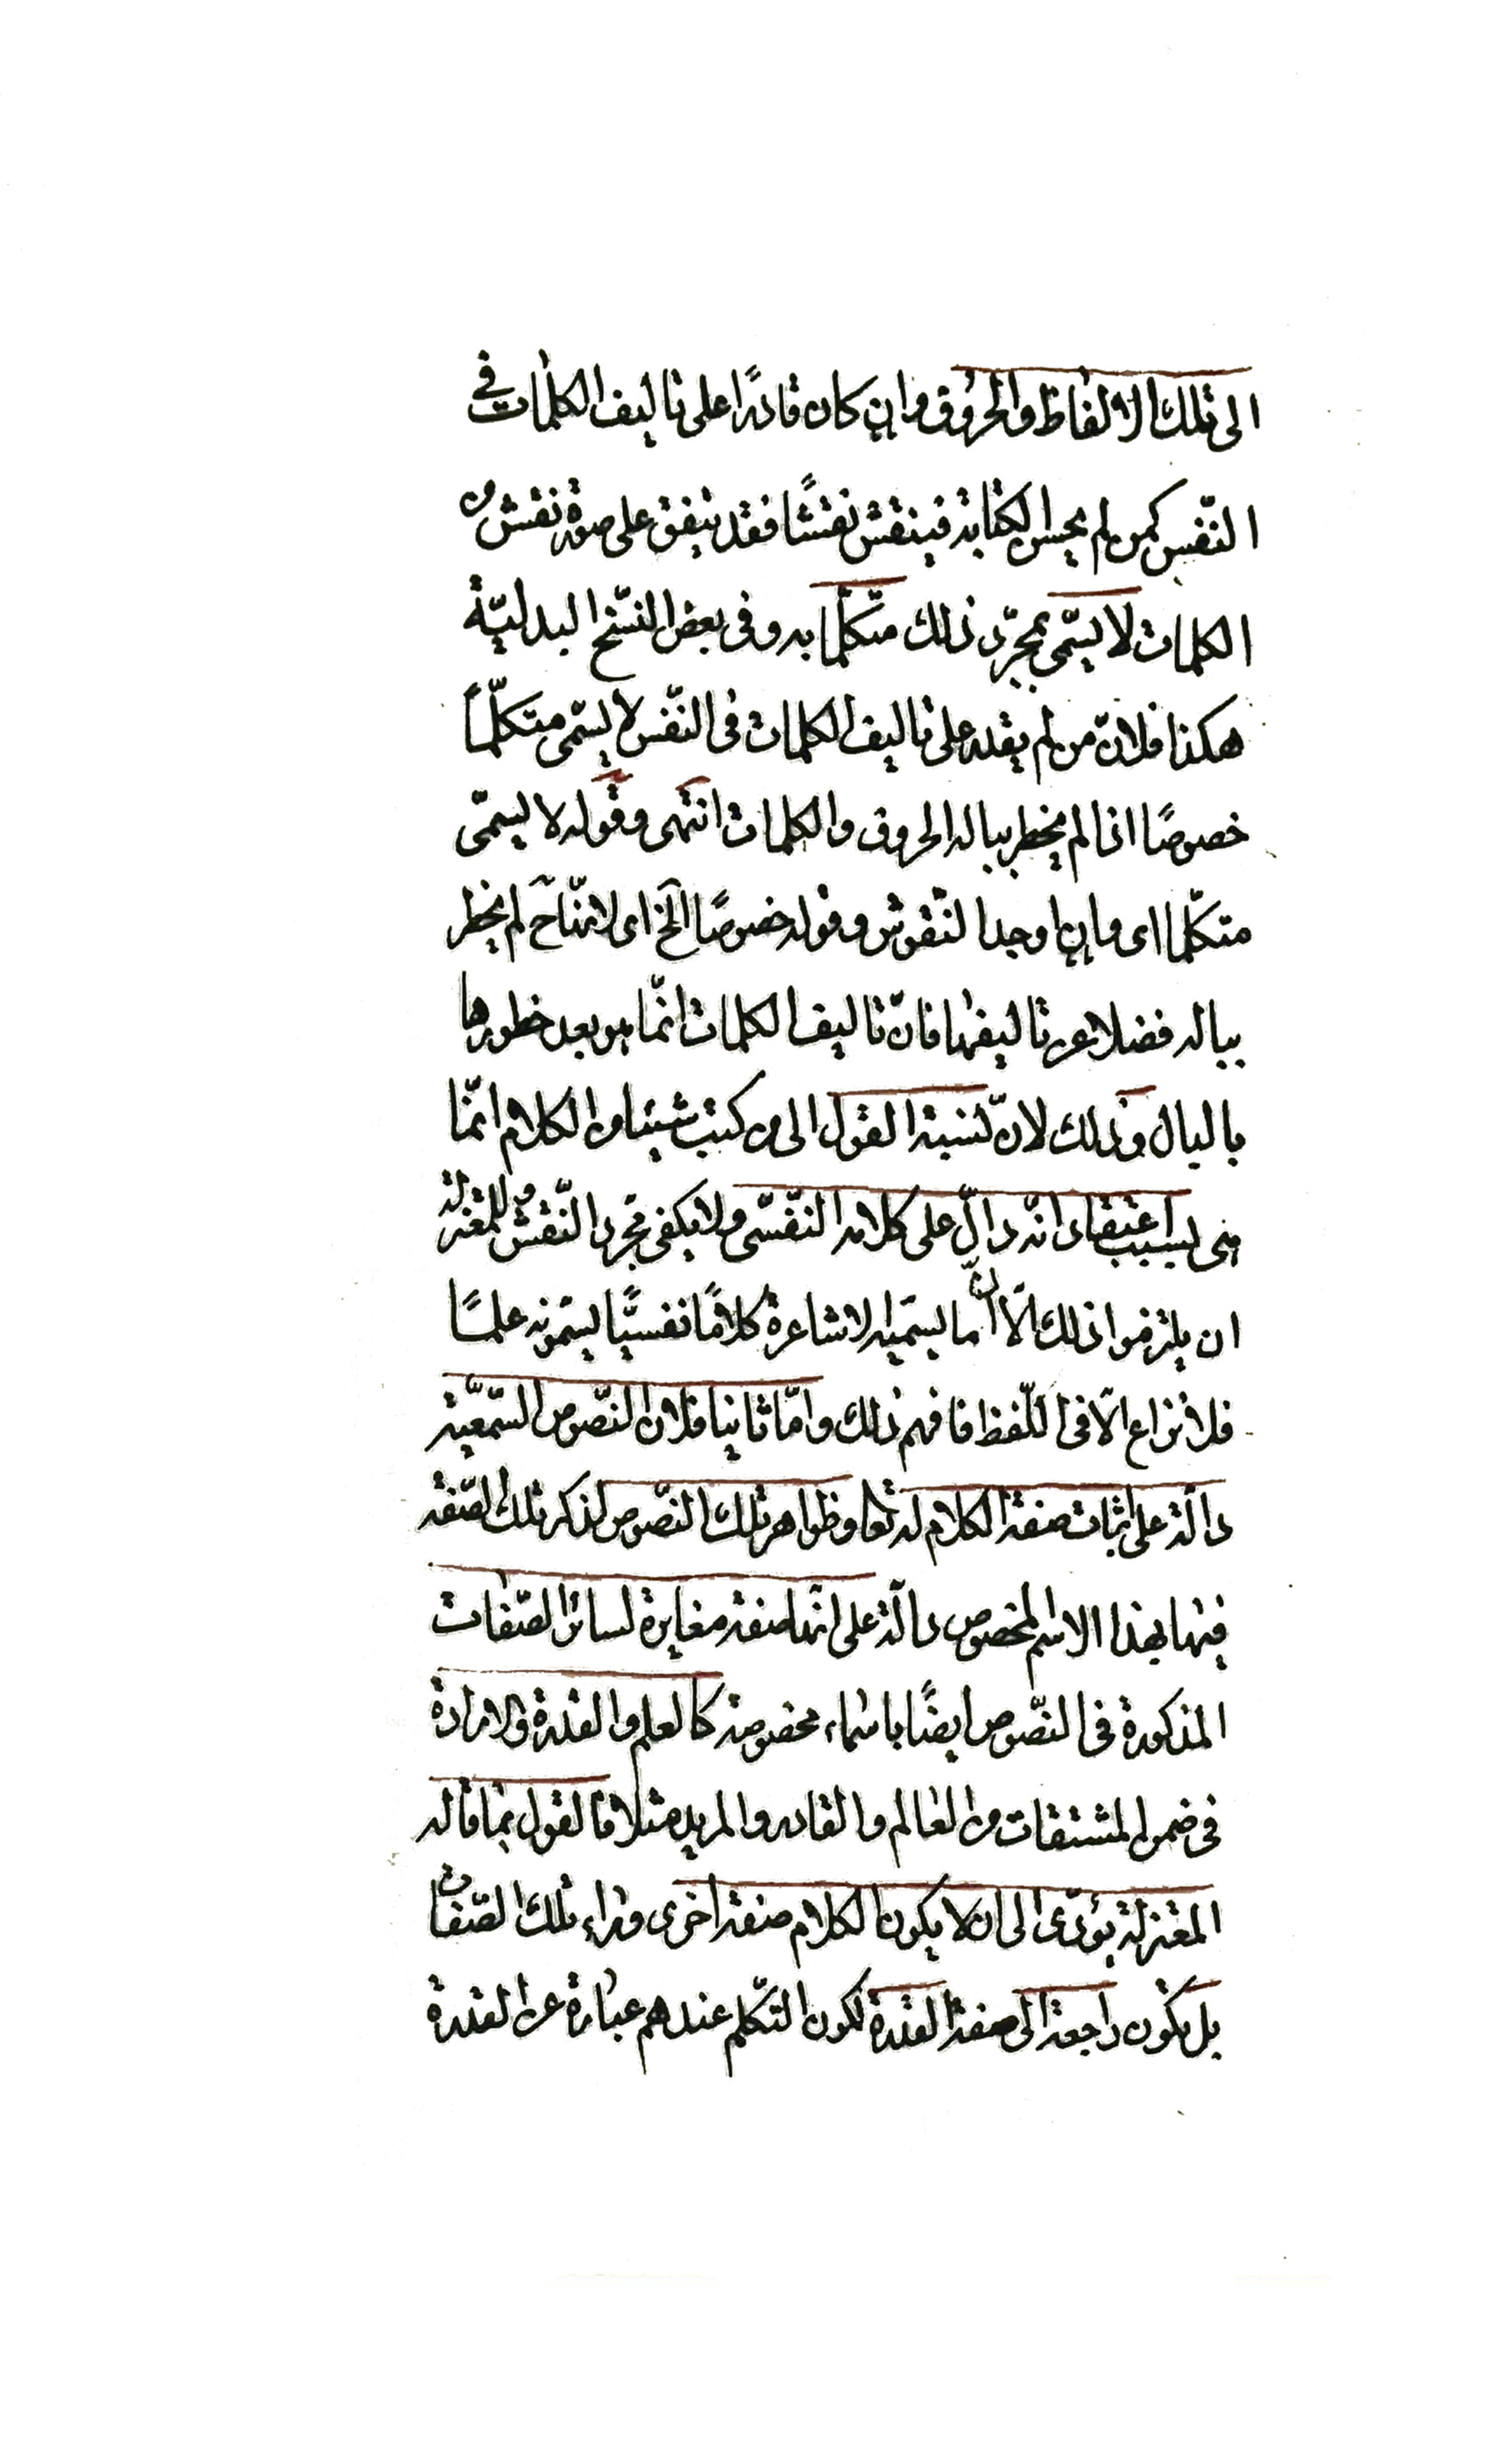 الى تلك الالفاظ والحروف وان كان قادرًا على تاليف الكلمات في
النّفس كمن لم يحسن الكتابة فينقش نقشًا فقد يتفق على صورة نقش
الكلمات لا يسمّى بمجرّد ذلك متكلّما به وفى بعض النّسخ البدليّة
هكذا فلانّ من لم يقدر على تاليف الكلمات فى النّفس لا يسمّى متكلّماً
خصوصًا اذا لم يخطر بباله الحروف والكلمات انتهى وقوله لا يسمّى
متكلّما اى وان اوجد النّقوش وقوله خصوصًا الخ اى لانّه ح لم يخطر
بباله فضلا عن تاليفها فانّ تاليف الكلمات انّما هو بعد خطورها
بالبال وذلك لانّ نسبة القول الى من كتب شيئا من الكلام انّما
هى بسبب اعتقاد انّه دالّ على كلامه النّفسّى ولا يكفى مجرد النّقش وللمعتزلة
ان يلتزموا ذلك الّا انّ ما يسمّيه الاشاعرة كلامًا نفسيًّا يسمّونه علمًا
فلا نزاع الّا فى اللّفظ فافهم ذلك وامّا ثانيا فلان النّصوص السّمعيّة
دالّة على اثبات صفة الكلام له تعا وظواهر تلك النّصوص لذكر تلك الصّفة
فيها بهذا الاسم المخصوص دالّة على انّها صفة مغايرة لسائر الصّفات
المذكورة فى النّصوص ايضًا باسماء مخصوصة كالعلم والقدرة والارادة
فى ضمن المشتقات من العالم والقادر والمريد مثلا فالقول بما قاله
المعتزلة يؤدّى الى ان لا يكون الكلام صفة اخرى وراء تلك الصّفات
بل يكون راجعة الى صفة القدرة لكون التكّلم عندهم عبارة عن القدرة